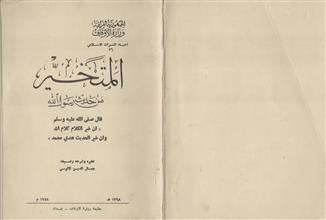 الجمهورية العراقية
وزارة الأوقاف
احياء التراث الاسلامي
المتخير
من حديث رسول الله
قال صلى الله عليه وسلم
« ان خير الكلام كلام الله
وان خير الحديث هدي محمد »
جمال الدين الالوسي
١٣٩٨ هـ
١٩٧٨ م
مطبعة وزارة الاوقاف - بغداد